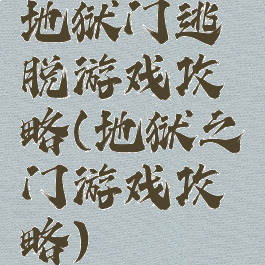 地狱门逃
脱游戏攻
略(地狱之
门游戏攻
略)